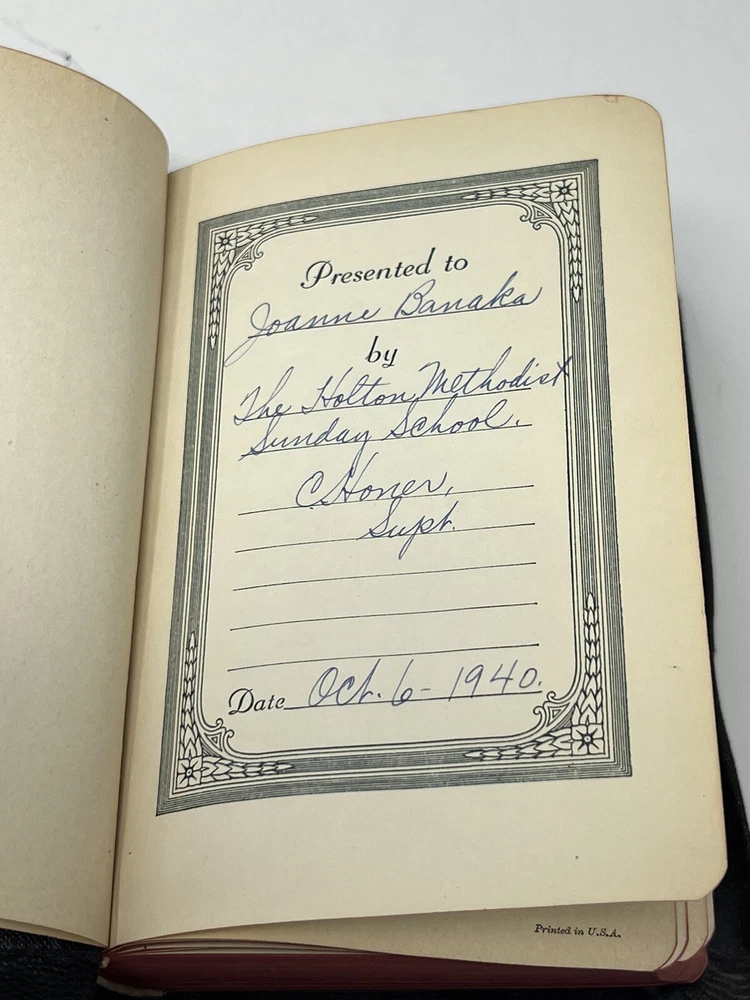 Presented to
Joanne Banaka
by
The Holton Methodist
Sunday School.
C. Honer,
Supt.
Date Oct. 6 - 1940.
Printed in U.S.A.